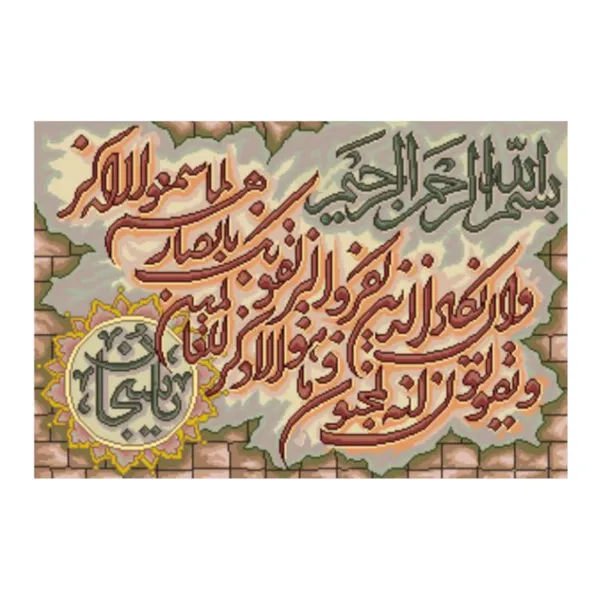 بسم الله الرحمن الرحیم
وان یکاد الذین کفروا لیزلقونک بابصارهم لما سمعوا الذکر
ویقولون انه لمجنون وما هو الا ذکر للعالمین
یا سبحان